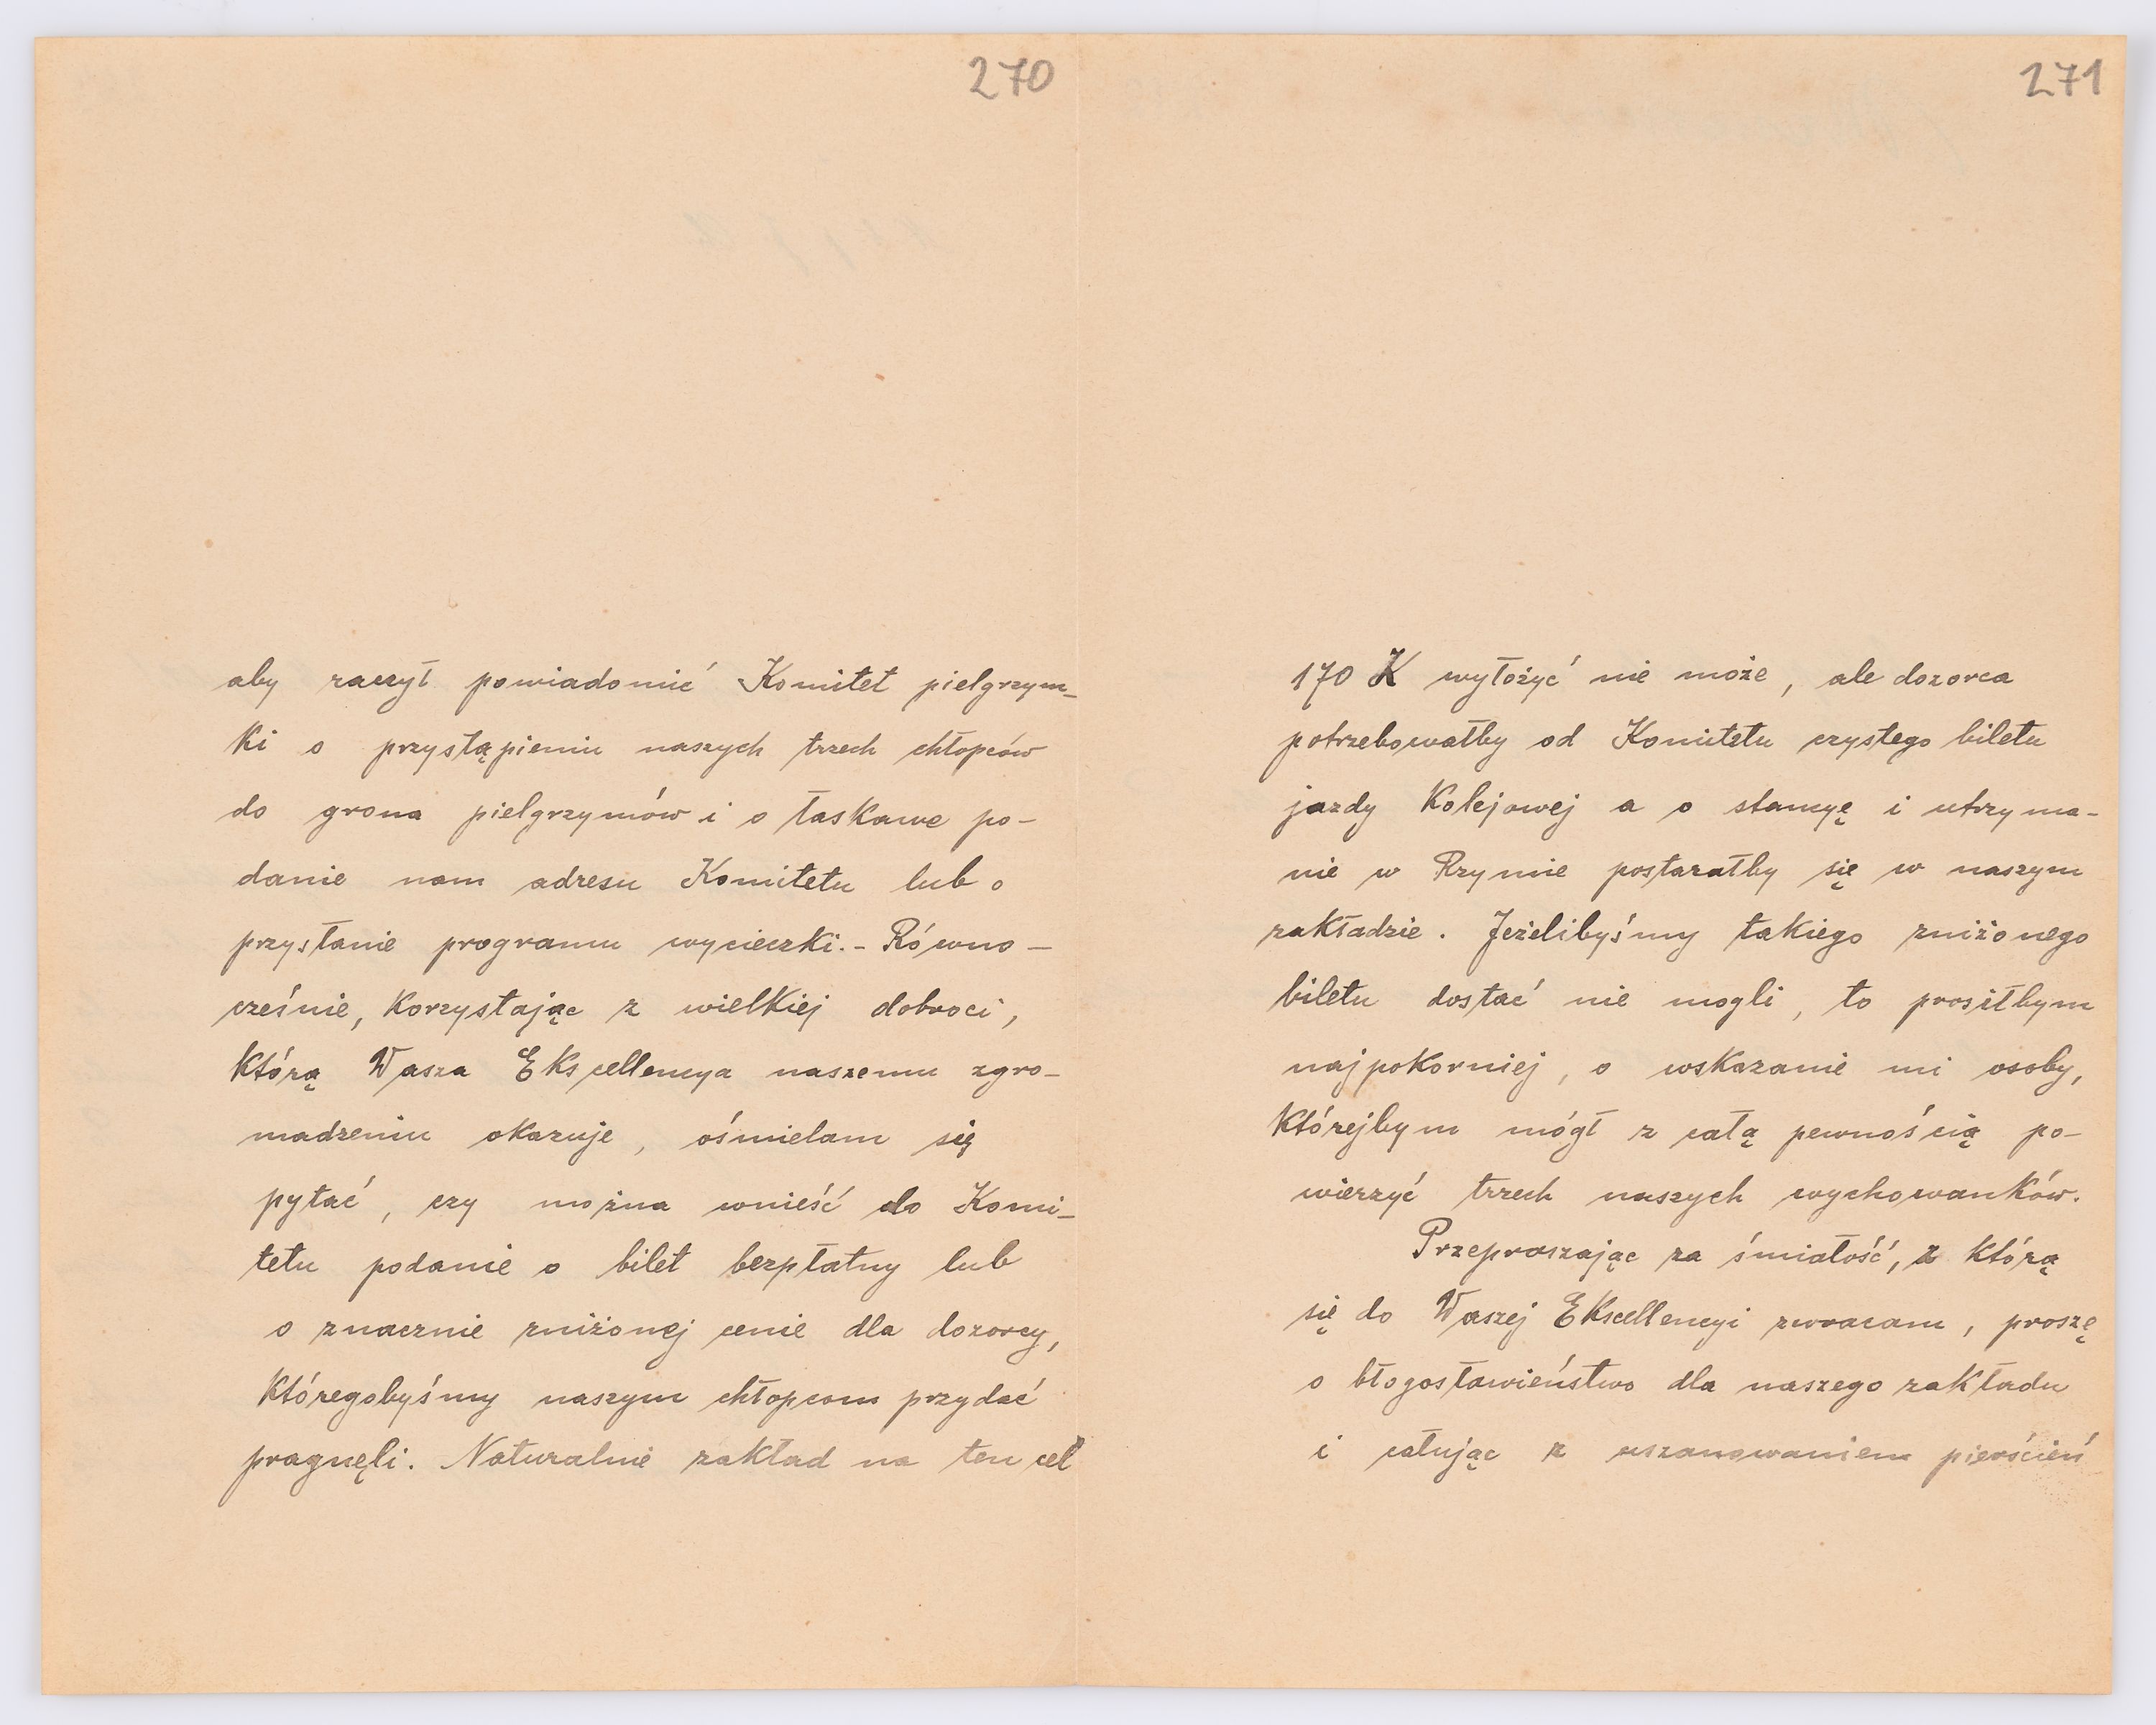 270
aby raczył powiadomić Komitet pielgrzym-
ki o przystąpieniu naszych trzech chłopców
do grona pielgrzymów i o łaskawe po-
danie nam adresu Komitetu lub o
przysłanie programu wycieczki. - Równo-
cześnie, korzystając z wielkiej dobroci,
którą Wasza Ekscellencya naszemu zgro-
madzeniu okazuje, ośmielam się
pytać, czy można wnieść do Komi-
tetu podanie o bilet bezpłatny lub
o znacznie zniżonej cenie dla dozorcy,
któregobyśmy naszym chłopcom przydać
pragnęli. Naturalnie zakład na ten cel
271
170 K wyłożyć nie może, ale dozorca
potrzebowałby od Komitetu czystego biletu
jazdy kolejowej a o stancyę i utrzyma-
nie w Rzymie postarałby się w naszym
zakładzie. Jeżelibyśmy takiego zniżonego
biletu dostać nie mogli, to prosiłbym
najpokorniej, o wskazanie mi osoby,
którejbym mógł z całą pewnością po-
wierzyć trzech naszych wychowanków.
Przepraszając za śmiałość, z którą
się do Waszej Ekscellencyi zwracam, proszę
o błogosławieństwo dla naszego zakładu
i całując z uszanowaniem pierścień